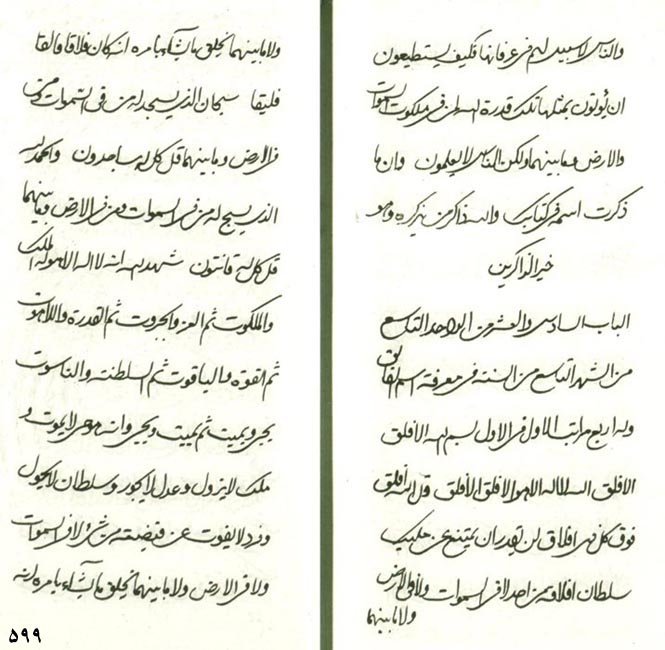 والناس لا سبيل لهم في عرفانها فكيف يستطيعون
ان يؤتون بمثلها تلك قدرة الله في ملكوت السموات
والارض وما بينهما ولكن الناس لا يعلمون وان ما
ذكرت اسمه في كتابك والله ذاكر من يذكره وهو
خير الذاكرين
الباب السادس والعشر من الواحد التاسع
من الشهر التاسع من السنة في معرفة اسم الفالق
وله اربع مراتب الاول في الاول بسم الله الافلق
الافلق الله لا اله الا هو الافلق الافلق قل الله افلق
فوق كل ذي افلاق لن يقدر ان يمتنع عن مليك
سلطان افلاقه من احد لا في السموات ولا في الارض
ولا ما بينهما
ولا ما بينهما يخلق ما يشاء بامره انه كان فلاقا فالقا
فليقا سبحان الذي يسجد له من في السموات ومن
في الارض وما بينهما قل كل له ساجدون والحمد لله
الذي يسبح له من في السموات ومن في الارض وما بينهما
قل كل له قانتون شهد الله انه لا اله الا هو له الملك
والملكوت ثم العز والجبروت ثم القدرة واللاهوت
ثم القوة والياقوت ثم السلطنة والناسوت
يحيي ويميت ثم يميت ويحيي وانه هو حي لا يموت و
ملك لا يزول وعدل لا يجور وسلطان لا يحول
وفرد لا يفوت عن قبضته من شيء لا في السموات
ولا في الارض ولا ما بينهما يخلق ما يشاء بامره انه
۵۹۹